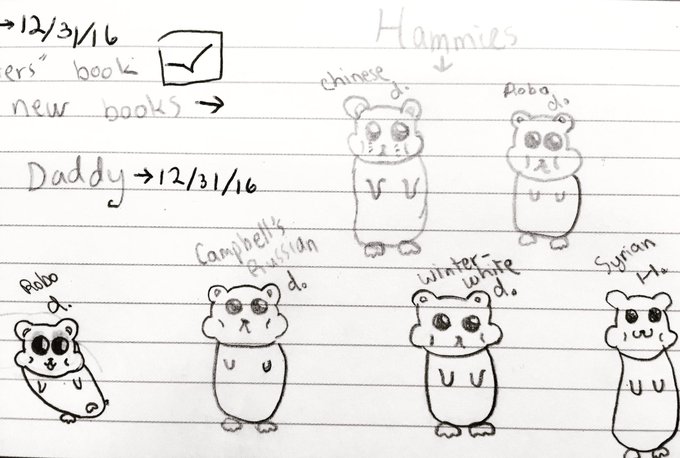 →12/31/16
ers" book
new books →
Daddy →12/31/16
Hammies
↓
Chinese
d.
Robo
d.
Robo
d.
Campbell's
Russian
d.
Winter-
white
d.
Syrian
H.